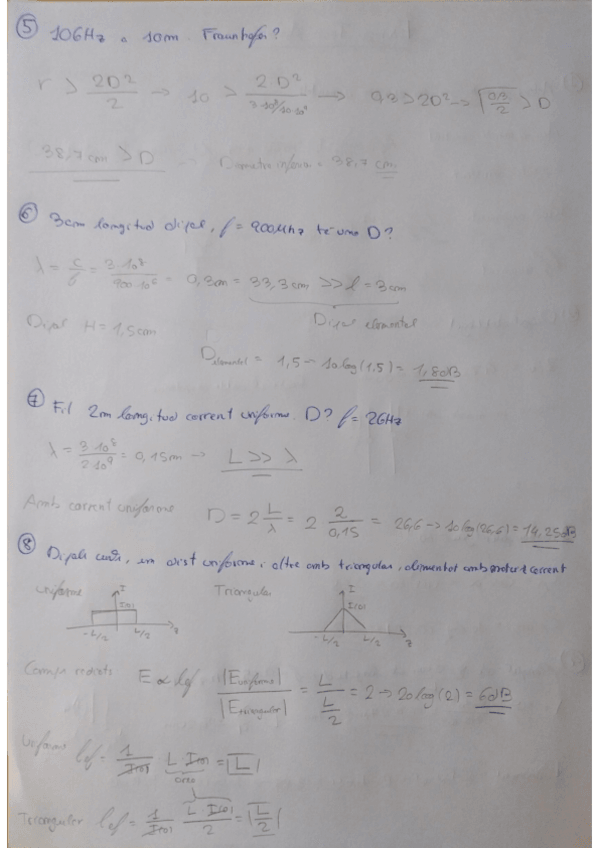 ⑤ 10GHz a 10m Fraunhofer?
r > 2D²/2 → 10 > 2·D²/(3·10⁸/10·10⁹) → 0,3 > 2D² → √(0,3/2) > D
38,7cm > D Diametre inferior = 38,7 cm
⑥ 3cm longitud dipol, f = 900MHz té una D?
λ = c/f = 3·10⁸/900·10⁶ = 0,3m = 33,3cm >> l = 3cm
Dipol H = 1,5cm Dipol elemental
D elemental = 1,5 → 10log(1,5) = 1,8dB
⑦ Fil 2m longitud corrent uniforme D? f = 2GHz
λ = 3·10⁸/2·10⁹ = 0,15m → L >> λ
Amb corrent uniforme D = 2 L/λ = 2 2/0,15 = 26,6 → 10log(26,6) = 14,25dB
⑧ Dipols curts, un dist uniforme, altre amb triangular, alimentat amb corrent
Uniforme I I(0) -L/2 L/2 z Triangular I I(0) -L/2 L/2 z
Camps radiats E ∝ lef |Euniforme|/|Etriangular| = L/(L/2) = 2 → 20log(2) = 6dB
Uniforme lef = 1/I(0) L·I(0) = |L|
àrea
Triangular lef = 1/I(0) L·I(0)/2 = |L/2|